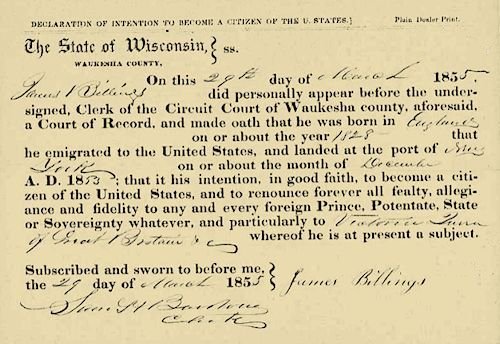 DECLARATION OF INTENTION TO BECOME A CITIZEN OF THE U. STATES.] Plain Dealer Print.
The State of Wisconsin, } ss.
WAUKESHA COUNTY,
On this 29th day of March 1855
James Billings did personally appear before the under-
signed, Clerk of the Circuit Court of Waukesha county, aforesaid,
a Court of Record, and made oath that he was born in England
on or about the year 1828 that
he emigrated to the United States, and landed at the port of New
York on or about the month of December
A. D. 1853; that it his intention, in good faith, to become a citi-
zen of the United States, and to renounce forever all fealty, allegi-
ance and fidelity to any and every foreign Prince, Potentate, State
or Sovereignty whatever, and particularly to Victoria Queen
of Great Britain &c whereof he is at present a subject.
Subscribed and sworn to before me,
the 29 day of March 1855 } James Billings
Clerk